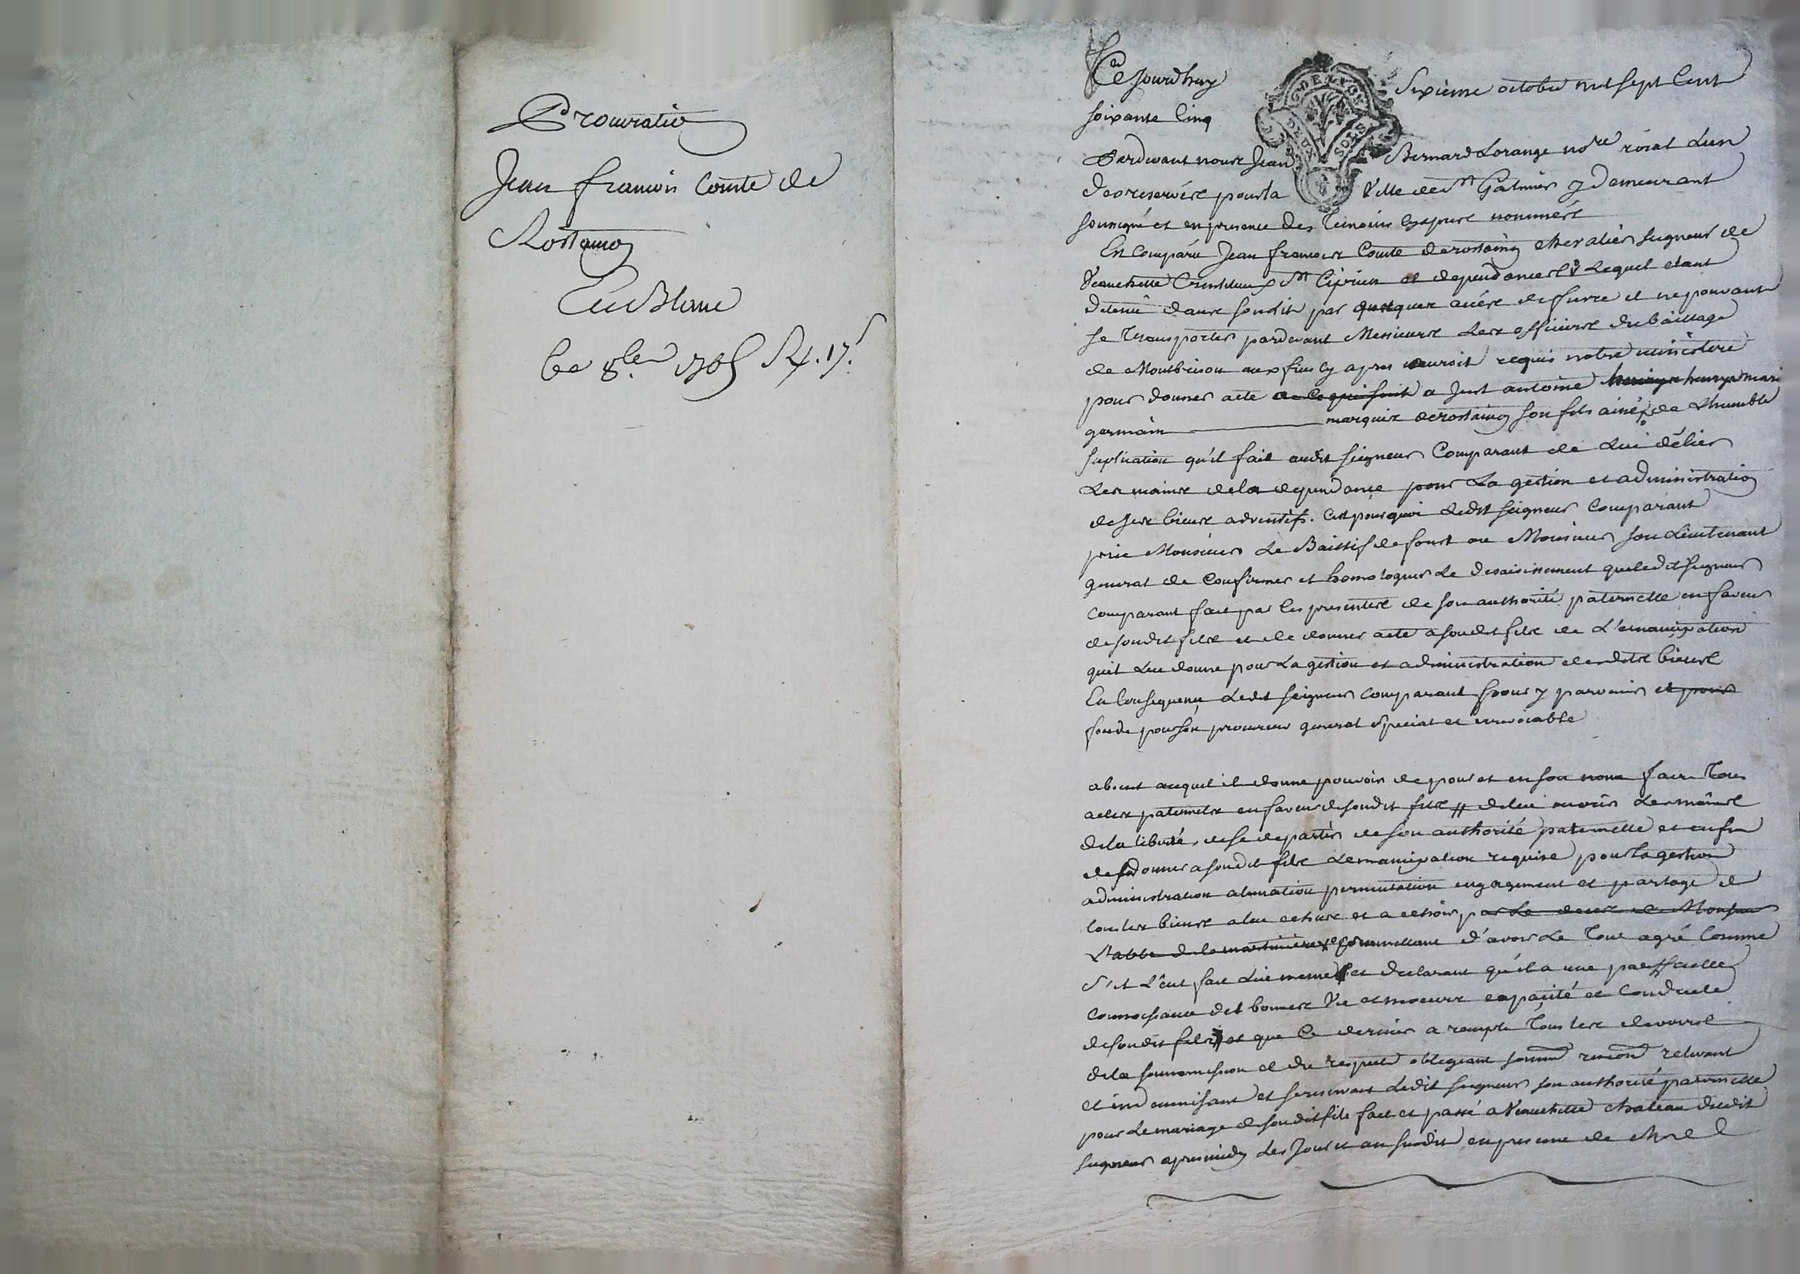 Procuration
Jean francois Comte de
Rostaing
En Blanc
le 8bre 1765
Ce jourd'huy sixieme octobre mil sept Cent
soixante Cinq
G DE LYON
DEUX SOLS
Pardevant nous Jean Bernard Lorange nore roial L'un
des reservés pour la Ville de St Galmier y demeurant
soussigné et en presence des Temoins cy apres nommés
Est Comparu Jean francois Comte de rostaing chevalier seigneur de
Veauchette St Ciprien et dependances Lequel etant
detenu dans son lit par quelques accés de fievre et ne pouvant
se Transporter pardevant Messieurs Les officiers du bailliage
de Montbrison aux fins cy apres auroit requis notre ministere
pour donner acte de ce qui suit a Just antoine henry mari
germain marquis de rostaing son fils ainé de L'humble
suplication qu'il fait audit seigneur Comparant de Lui délier
Les mains de la dependance pour La gestion et administration
de ses biens adventifs. C'est pourquoi Ledit seigneur Comparant
prie Monsieur Le Baillif de forest ou Monsieur son Lieutenant
general de Confirmer et homologuer Le desaisissement que ledit seigneur
Comparant fait par les presentes de son authorité paternelle en faveur
de sondit fils et de donner acte a sondit fils de L'emancipation
qu'il Lui donne pour La gestion et administration desdits biens
En Consequence Ledit seigneur Comparant pour y parvenir et pour
fonde pour son procureur general special et irrevocable
absent auquel il donne pouvoir de pour et en son nom faire Tous
actes paternels en faveur de sondit fils de lui ouvrir Les mains
de la liberté, de se departir de son authorité paternelle et enfin
de donner a sondit fils L'emancipation requise pour la gestion
administration alienation permutation engagement et partage de
tous les biens a lui echus et a echoir par Le deces de Monsieur
L'abbé de la martiniere promettant d'avoir Le Tout agré Comme
s'il L'eut fait Lui meme et declarant qu'il a une parffaitte
Connoissance des bonnes Vie et moeurs capacité et Conduite
de sondit fils et que Ce dernier a rempli Tous les devoirs
de la soumission et du respect obligeant soumt renonct relevant
et indemnisant et reservant Ledit seigneur son authorité paternelle
pour Le mariage de sondit fils fait et passé a Veauchette chateau dudit
seigneur apres midy Les Jour et an susdits en presence de